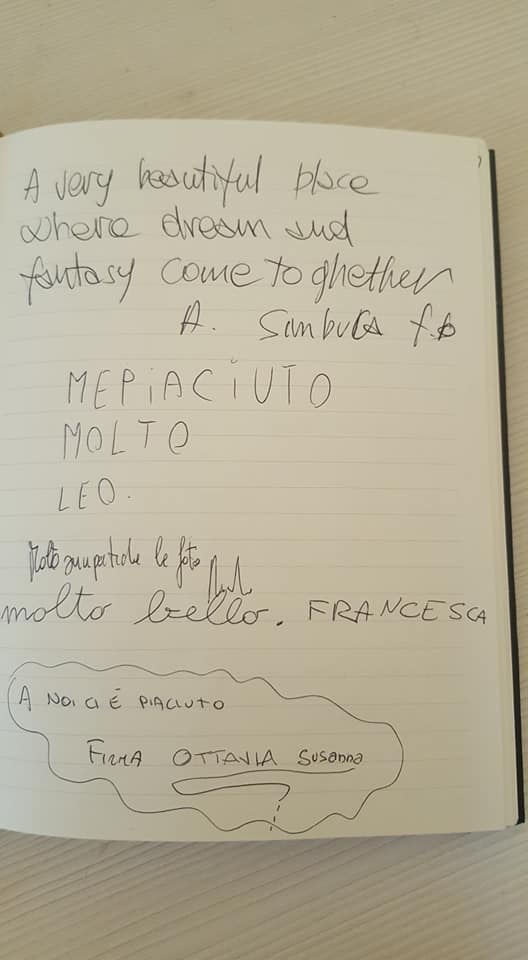 A very beautiful place
where dream and
fantasy come to ghether
A. Sambuca f.
MEPiACiUTO
MOLTO
LEO.
Molto simpatiche le foto
molto bello. FRANCESCA
A NOI CI È PIACIUTO
FIRMA OTTAVIA Susanna